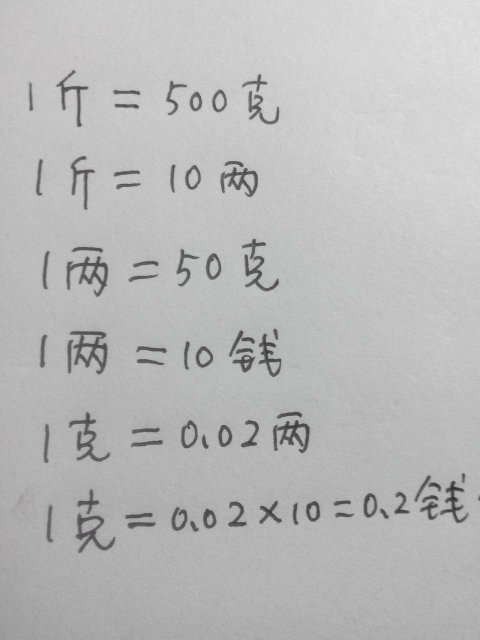 1斤=500克
1斤=10两
1两=50克
1两=10钱
1克=0.02两
1克=0.02×10=0.2钱